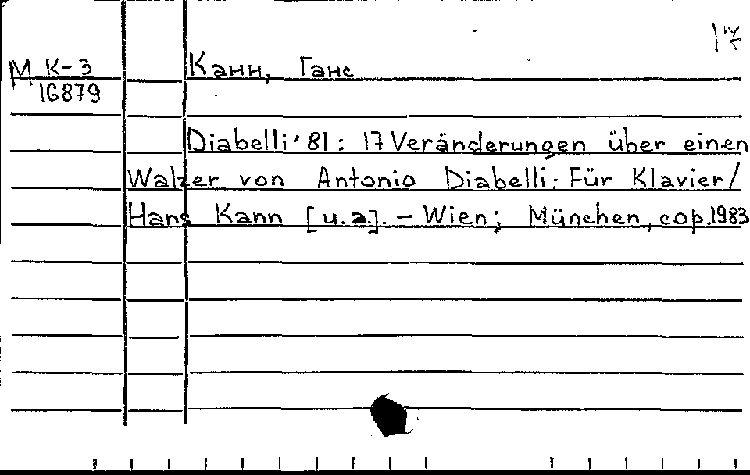 М К-3
16879
Канн, Ганс
Diabelli '81 : 17 Veränderungen über einen
Walzer von Antonio Diabelli: Für Klavier /
Hans Kann [u.a]. – Wien; München, cop.1983